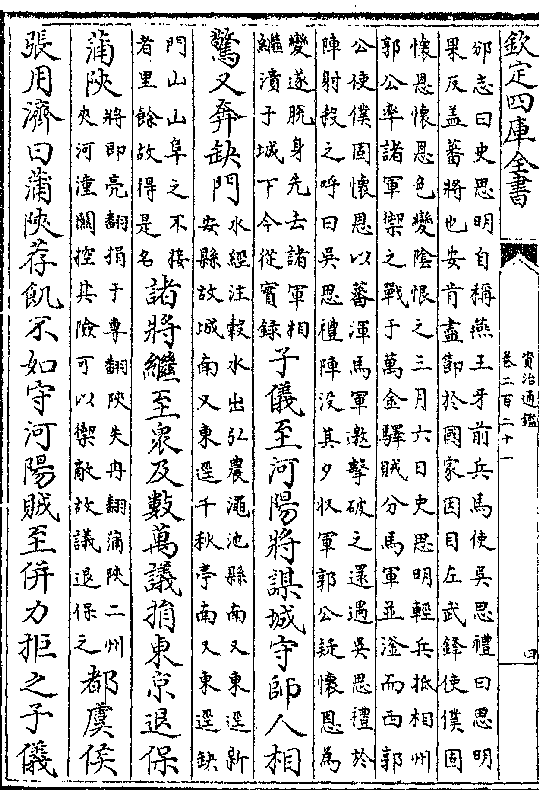 欽定四庫全書
資治通鑑
卷二百二十一
四
邠志曰史思明自稱燕王牙前兵馬使吳思禮曰思明
果反盖蕃將也安肯盡節於國家因目左武鋒使僕固
懷恩懷恩色變陰恨之三月六日史思明輕兵抵相州
郭公率諸軍禦之戰于萬金驛賊分馬軍並滏而西郭
公使僕固懷恩以蕃渾馬軍邀擊破之還遇吳思禮於
陣射殺之呼曰吳思禮陣没其夕收軍郭公疑懷恩為
變遂脫身先去諸軍相
繼潰于城下今從實録
子儀至河陽將謀城守師人相
驚又奔缺門
水經注榖水出弘農澠池縣南又東逕新
安縣故城南又東逕千秋亭南又東逕缺
門山山阜之不接
者里餘故得是名
諸將繼至衆及數萬議捐東京退保
蒲陜
將即亮翻捐于專翻陜失冉翻蒲陜二州
夾河潼關控其險可以禦敵故議退保之
都虞侯
張用濟曰蒲陜荐飢不如守河陽賊至併力拒之子儀